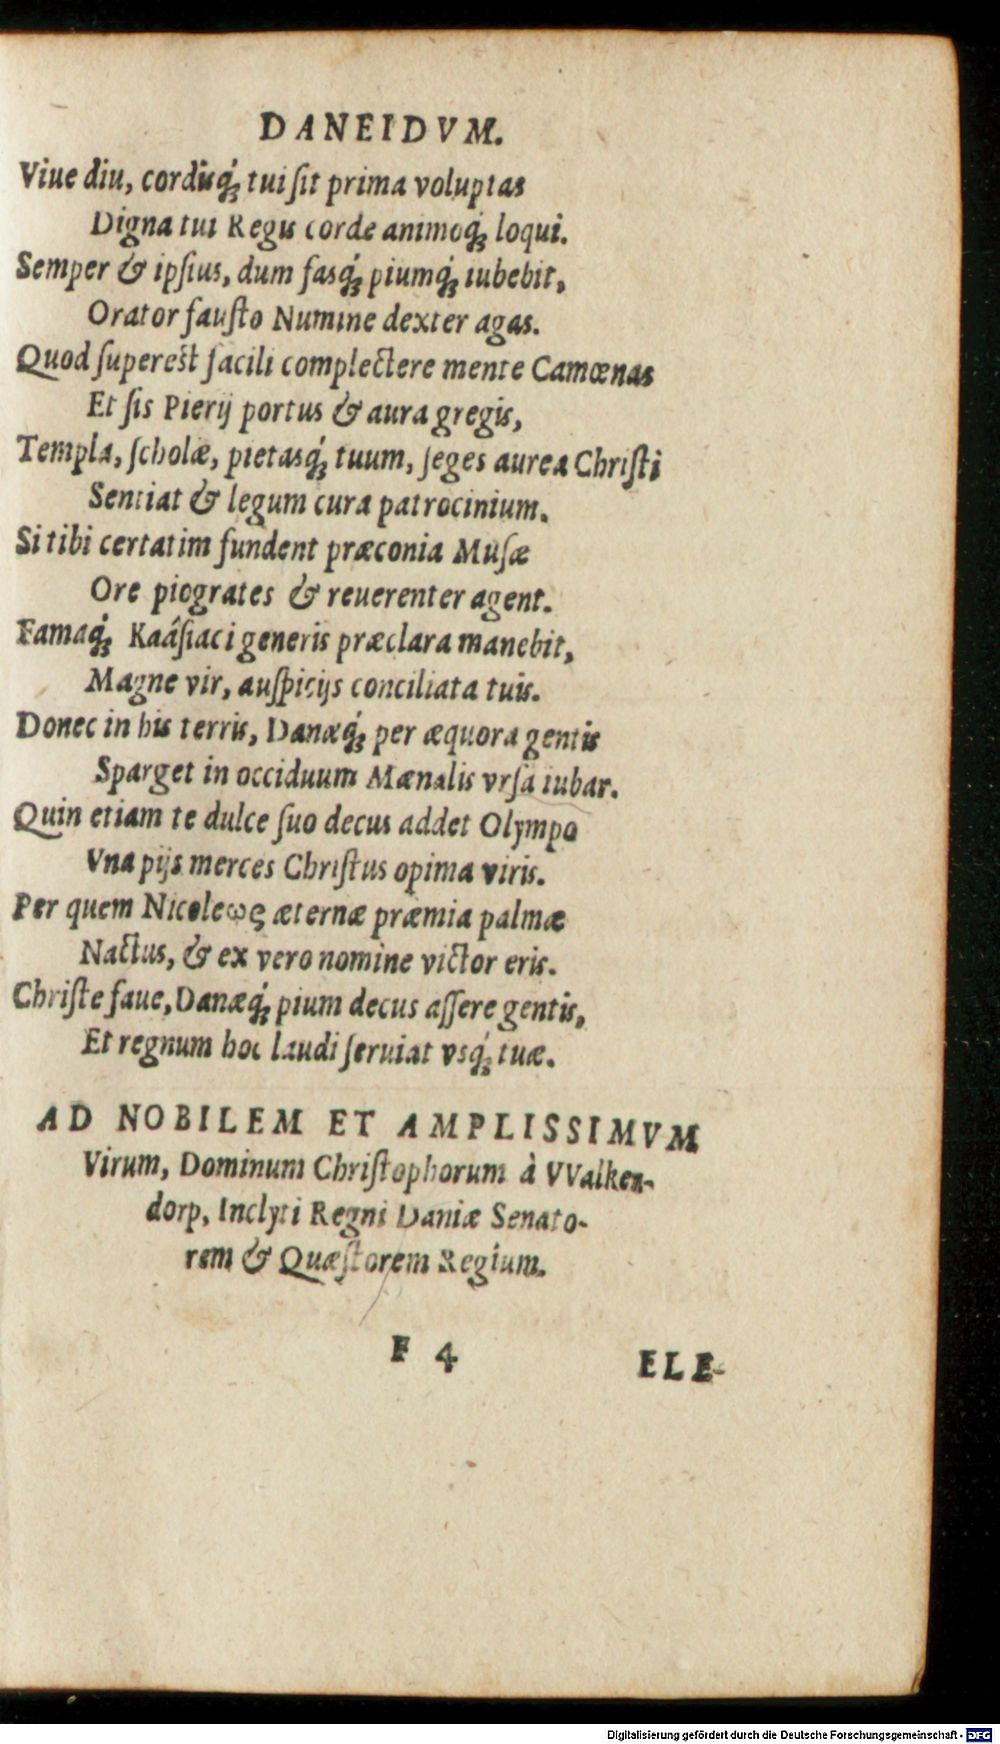 DANEIDVM.
Viue diu, cordisq́; tui ſit prima voluptas
Digna tui Regis corde animoq́; loqui.
Semper & ipſius, dum fasq́; piumq́; iubebit,
Orator fauſto Numine dexter agas.
Quod ſupereſt facili complectere mente Camœnas
Et ſis Pierij portus & aura gregis,
Templa, ſcholæ, pietasq́; tuum, ſeges aurea Chriſti
Sentiat & legum cura patrocinium.
Si tibi certatim fundent præconia Muſæ
Ore piogrates & reuerenter agent.
Famaq́; Kaâſiaci generis præclara manebit,
Magne vir, auſpicijs conciliata tuis.
Donec in his terris, Danæq́; per æquora gentis
Sparget in occiduum Mænalis vrſa iubar.
Quin etiam te dulce ſuo decus addet Olympo
Vna pijs merces Chriſtus opima viris.
Per quem Nicoleως æternæ præmia palmæ
Nactus, & ex vero nomine victor eris.
Chriſte faue, Danæq́; pium decus aſſere gentis,
Et regnum hoc laudi ſeruiat vsq́; tuæ.
AD NOBILEM ET AMPLISSIMVM
Virum, Dominum Chriſtophorum à VValken-
dorp, Inclyti Regni Daniæ Senato-
rem & Quæſtorem Regium.
F 4
ELE-
Digitalisierung gefördert durch die Deutsche Forschungsgemeinschaft - DFG